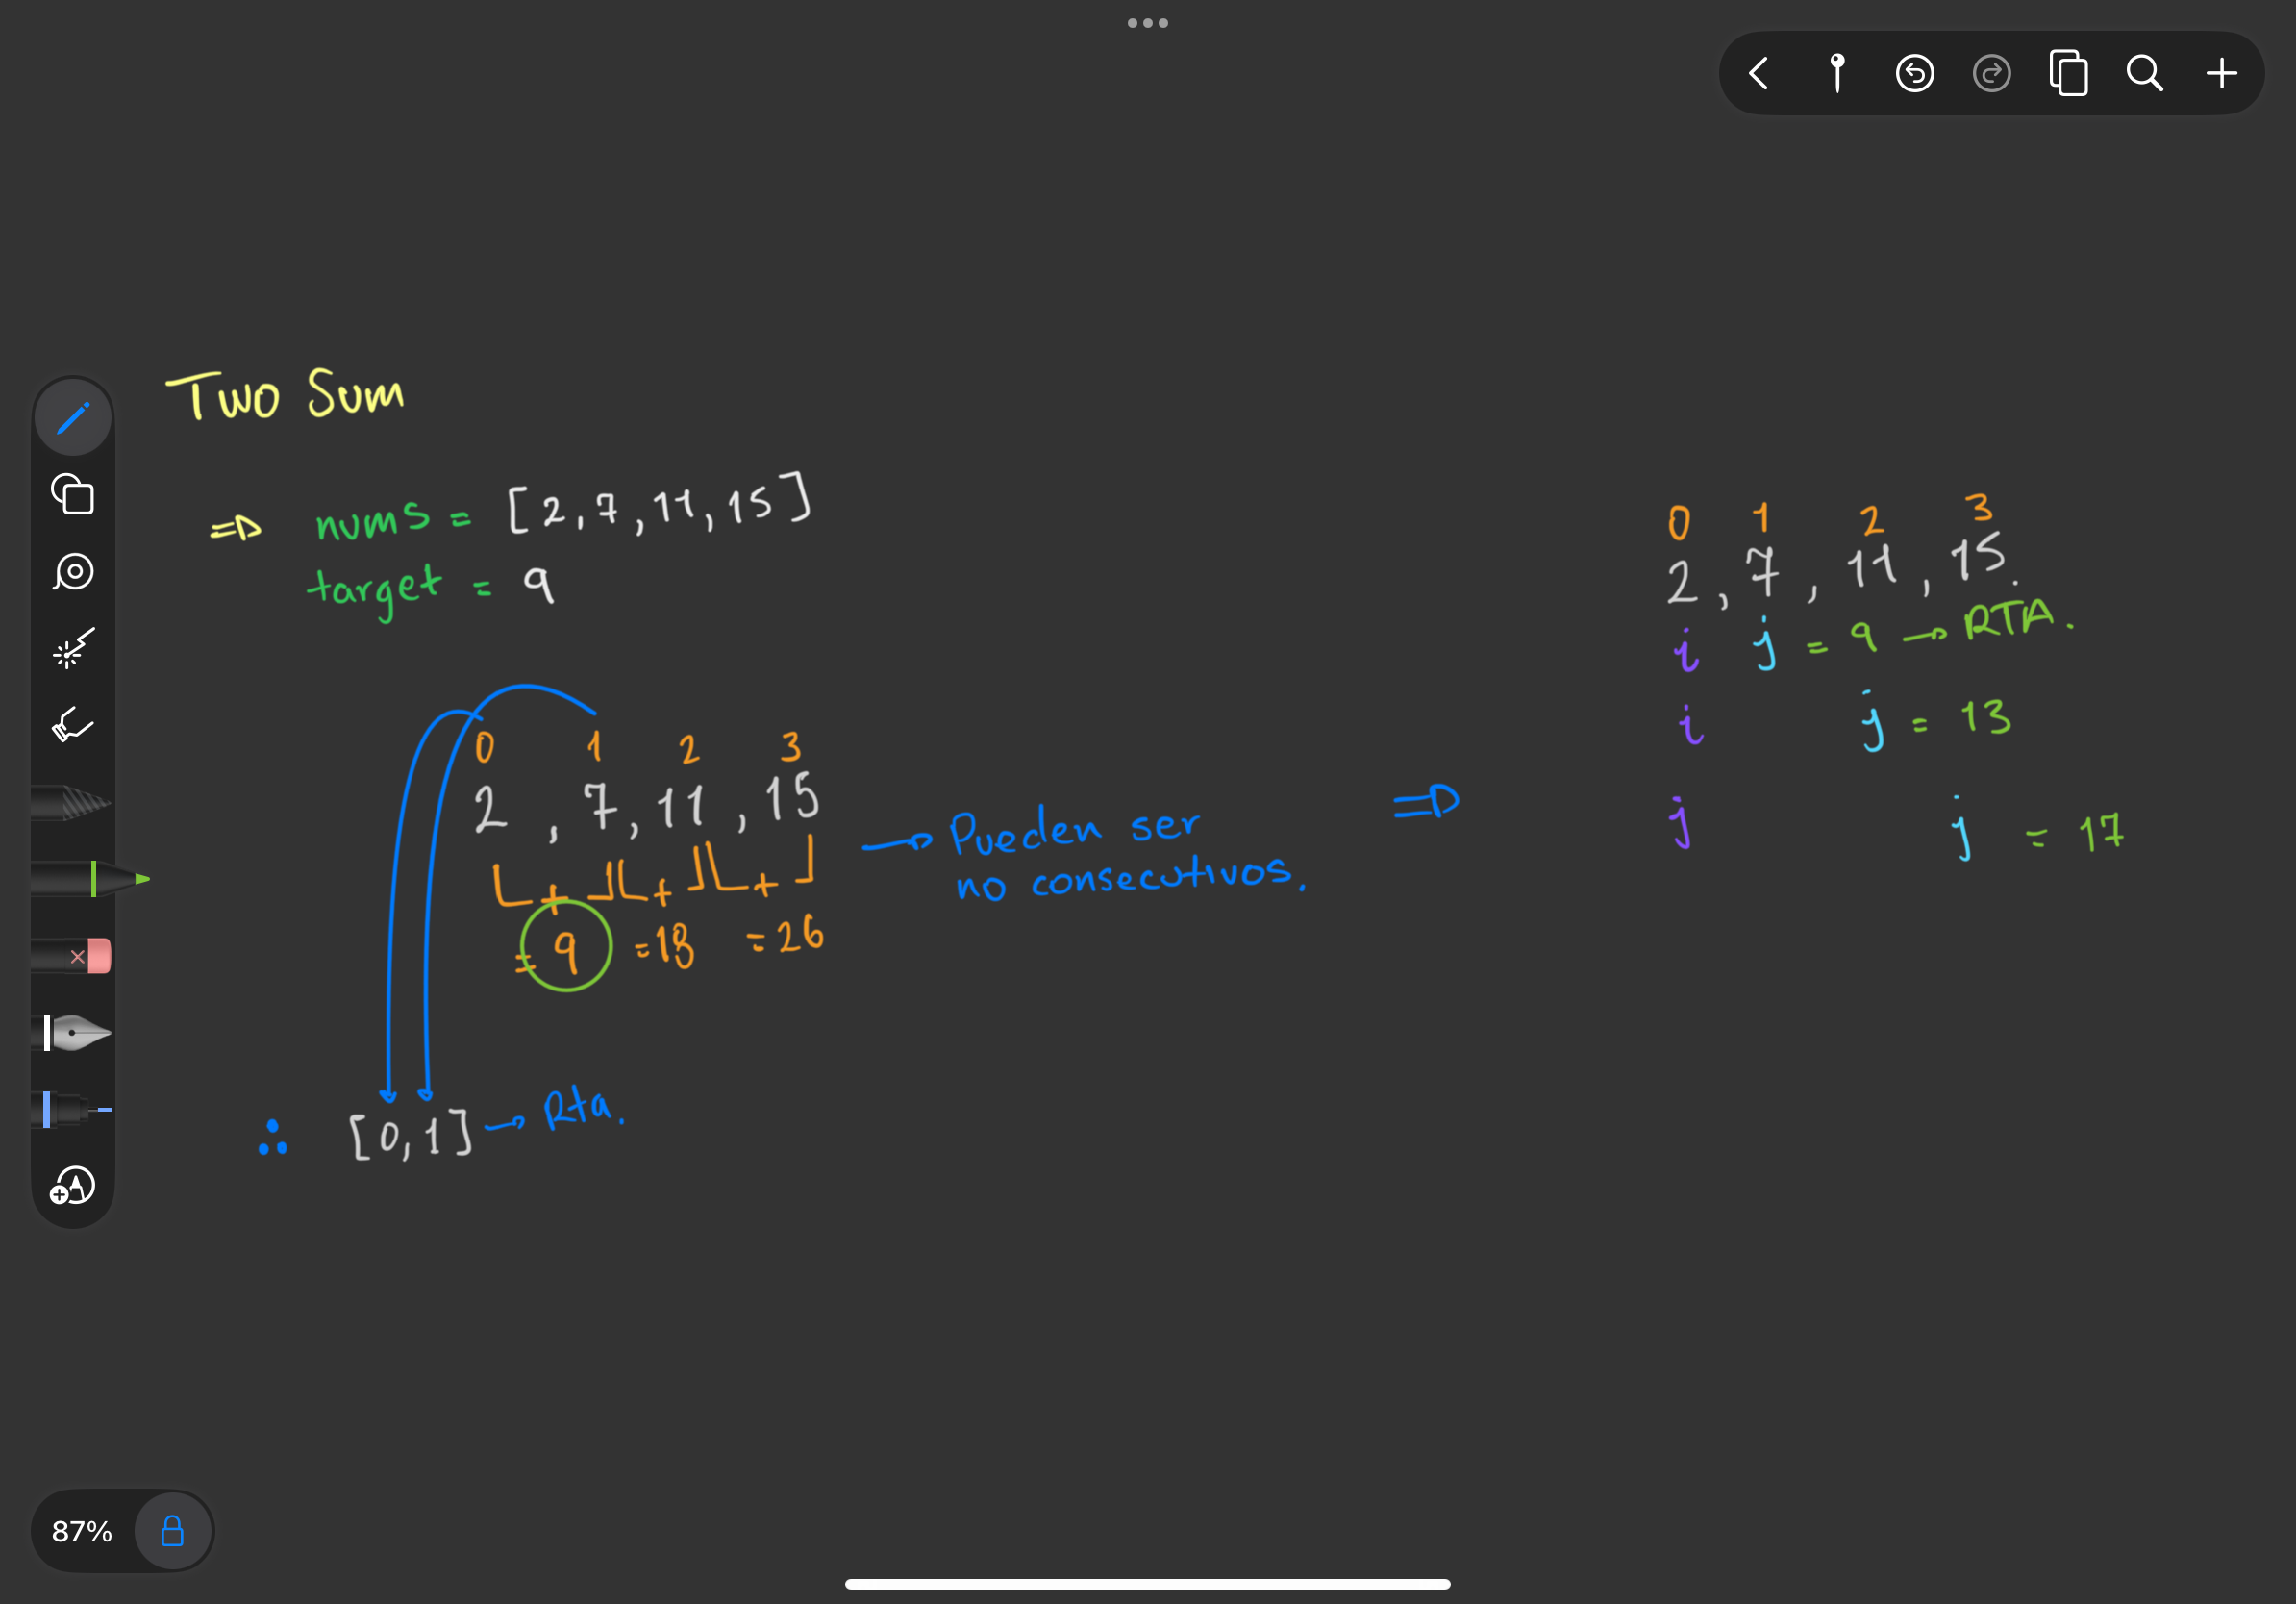 Two Sum
=> nums = [2,7,11,15]
target = 9
0 1 2 3
2, 7, 11, 15
+ + +
= 9 =18 =26
→ Pueden ser
no consecutivos.
∴ [0,1] → Rta.
=>
0 1 2 3
2, 7, 11, 15.
i j = 9 → RTA.
i j = 13
j j = 17
87%